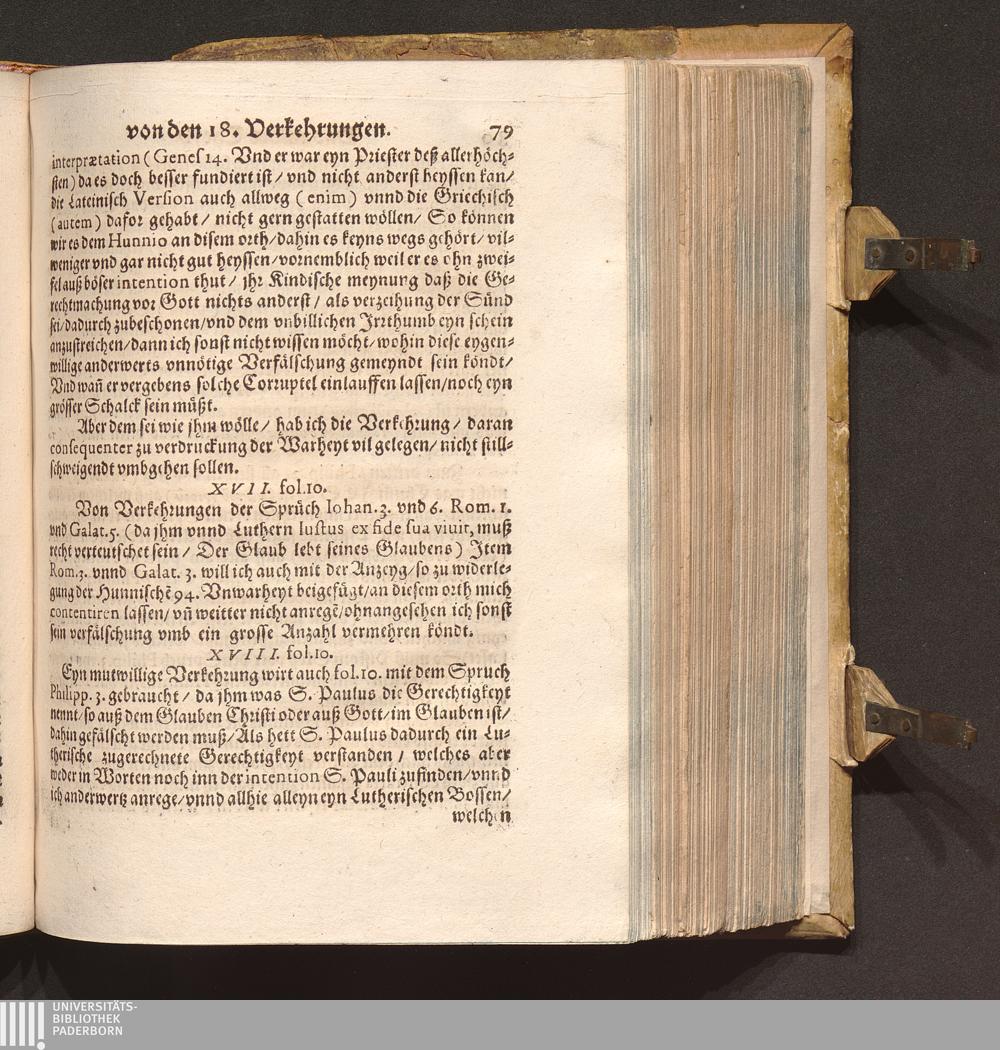 von den 18. Verkehrungen. 79
interprætation (Genes 14. Vnd er war eyn Priester deß allerhöch-
sten) da es doch besser fundiert ist / vnd nicht anderst heyssen kan /
die Lateinisch Version auch allweg (enim) vnnd die Griechisch
(autem) dafor gehabt / nicht gern gestatten wöllen / So können
wir es dem Hunnio an disem orth / dahin es keyns wegs gehört / vil-
weniger vnd gar nicht gut heyssen / vornemblich weil er es ohn zwei-
fel auß böser intention thut / jhr Kindische meynung daß die Ge-
rechtmachung vor Gott nichts anderst / als verzeihung der Sünd
sei / dadurch zubeschonen / vnd dem vnbillichen Jrrthumb eyn schein
anzustreichen / dann ich sonst nicht wissen möcht / wohin diese eygen-
willige anderwerts vnnötige Verfälschung gemeyndt sein köndt /
Vnd wañ er vergebens solche Corruptel einlauffen lassen / noch eyn
grösser Schalck sein müßt.
Aber dem sei wie jhm wölle / hab ich die Verkehrung / daran
consequenter zu verdruckung der Warheyt vil gelegen / nicht still-
schweigendt vmbgehen sollen.
XVII. fol.10.
Von Verkehrungen der Sprüch Iohan.3. vnd 6. Rom. 1.
vnd Galat.5. (da jhm vnnd Luthern Iustus ex fide sua viuit, muß
recht verteutschet sein / Der Glaub lebt seines Glaubens) Jtem
Rom.3. vnnd Galat. 3. will ich auch mit der Anzeyg / so zu widerle-
gung der Hunnischẽ 94. Vnwarheyt beigefügt / an diesem orth mich
contentiren lassen / vñ weitter nicht anregẽ / ohnangesehen ich sonst
sein verfälschung vmb ein grosse Anzahl vermehren köndt.
XVIII. fol.10.
Eyn mutwillige Verkehrung wirt auch fol.10. mit dem Spruch
Philipp. 3. gebraucht / da jhm was S. Paulus die Gerechtigkeyt
nennt / so auß dem Glauben Christi oder auß Gott / im Glauben ist /
dahin gefälscht werden muß / Als hett S. Paulus dadurch ein Lu-
therische zugerechnete Gerechtigkeyt verstanden / welches aber
weder in Worten noch inn der intention S. Pauli zufinden / vnnd
ich anderwertz anrege / vnnd allhie alleyn eyn Lutherischen Bossen /
welchen
UNIVERSITÄTS-
BIBLIOTHEK
PADERBORN